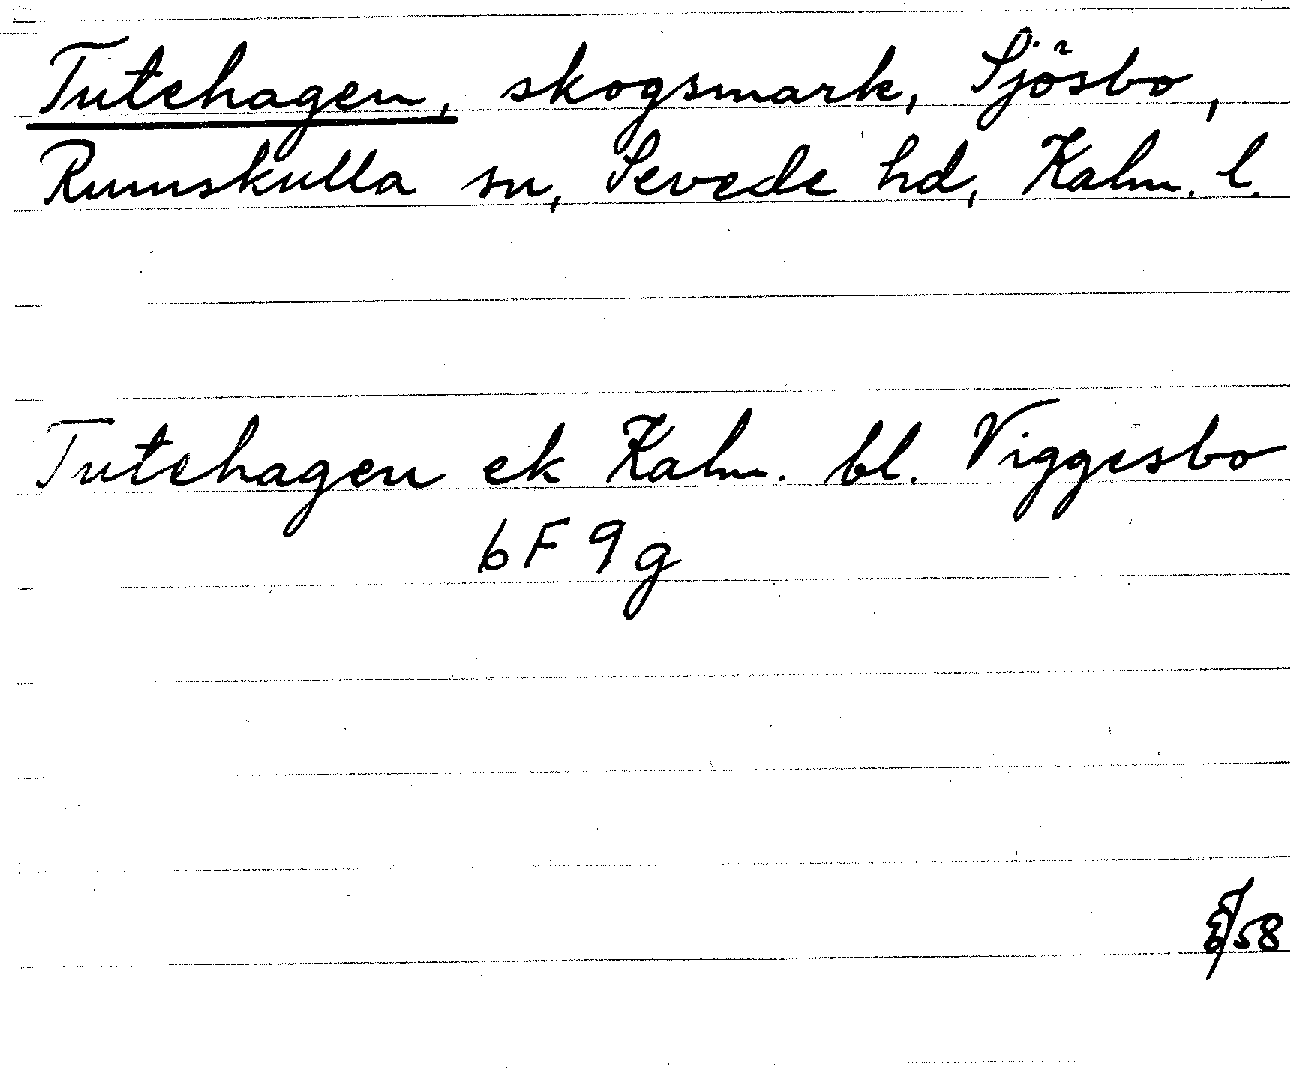 Tutehagen, skogsmark, Sjösbo,
Rumskulla sn, Sevede hd, Kalm. l.
Tutehagen ek Kalm. bl. Viggesbo
6F 9g
/58